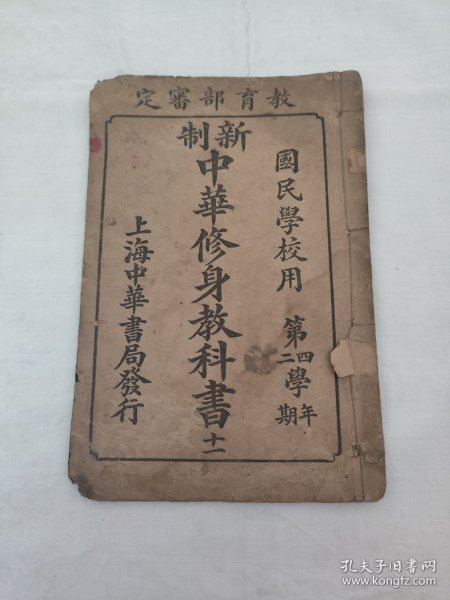 教育部審定
國民學校用 第四學年二學期
新制
中華修身教科書 十一
上海中華書局發行
孔夫子旧书网
www.kongfz.com